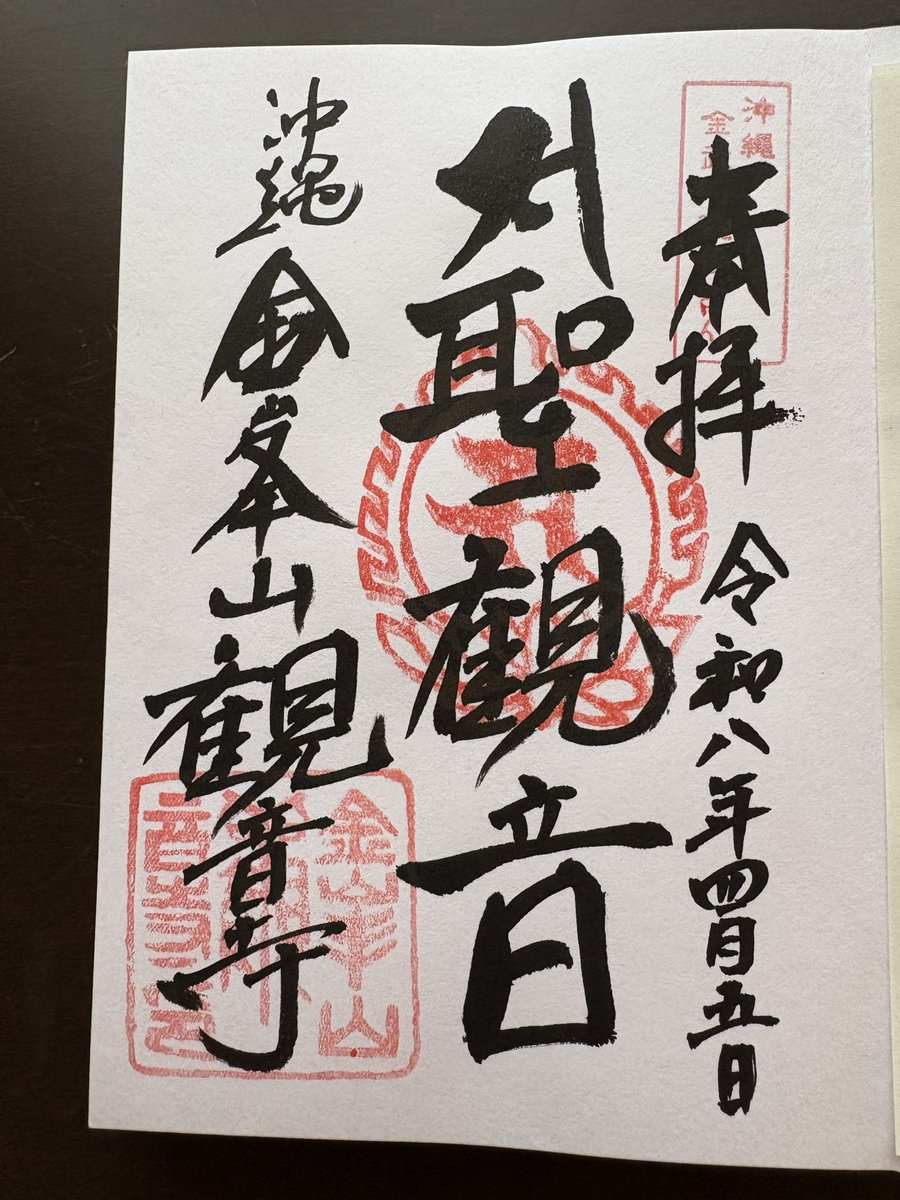 沖縄
金
奉拝 令和八年四月五日
聖観音
沖縄 金峯山観音寺
金峯山